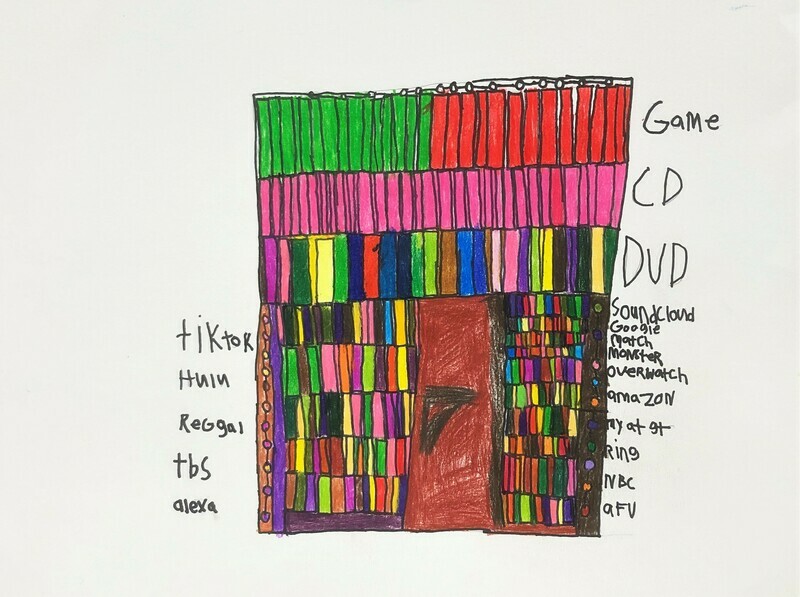 Game
CD
DVD
tiktok
Hulu
Reggal
tbs
alexa
Soundcloud
Google
match
monster
overwatch
amazon
my at gt
Ring
NBC
aFV